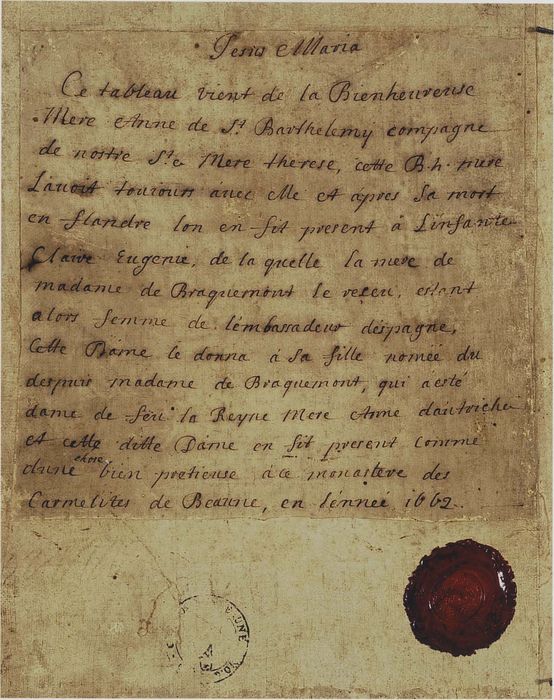 Jesus Maria
Ce tableau vient de la Bienheureuse
Mere Anne de St Barthelemy compagne
de nostre Ste Mere therese, cette B.h. mere
Lavoit toujours avec elle et apres sa mort
en flandre lon en fit present à Linfante
Claire Eugenie, de la quelle la mere de
madame de Braquemont le receu, estant
alors femme de lembassadeur déspagne,
Cette Dame le donna à sa fille nomée du
despuis madame de Braquemont, qui a esté
dame de feu la Reyne Mere Anne dautriche
et cette ditte Dame en fit present comme
dune chose bien pretieuse à ce monastere des
Carmelites de Beaune, en lénneé 1662.